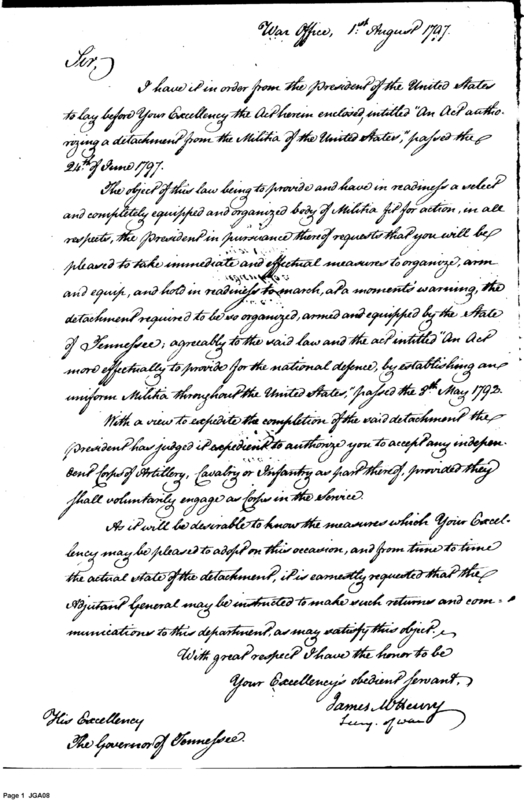 War Office, 1st August 1797.
Sir,
I have it in order from the President of the United States
to lay before Your Excellency the Act herein enclosed, intitled "An Act autho-
rizing a detachment from the Militia of the United States," passed the
24th of June 1797.
The object of this law being to provide and have in readiness a select
and completely equipped and organized body of Militia fit for action, in all
respects, the President in pursuance thereof requests that you will be
pleased to take immediate and effectual measures to organize, arm
and equip, and hold in readiness to march, at a moment's warning, the
detachment required to be so organized, armed and equipped by the State
of Tennessee; agreeably to the said law and the act intitled "An Act
more effectually to provide for the national defence, by establishing an
uniform Militia throughout the United States," passed the 8th May 1792.
With a view to expedite the completion of the said detachment the
President has judged it expedient to authorize you to accept any indepen-
dent Corps of Artillery, Cavalry or Infantry as part thereof, provided they
shall voluntarily engage as Corps in the Service.
As it will be desirable to know the measures which Your Excel-
lency may be pleased to adopt on this occasion, and from time to time
the actual state of the detachment, it is earnestly requested that the
Adjutant General may be instructed to make such returns and com-
munications to this department, as may satisfy this object.
With great respect I have the honor to be
Your Excellency's obedient servant,
James McHenry
Secy. of war
His Excellency
The Governor of Tennessee.
Page 1 JGA08